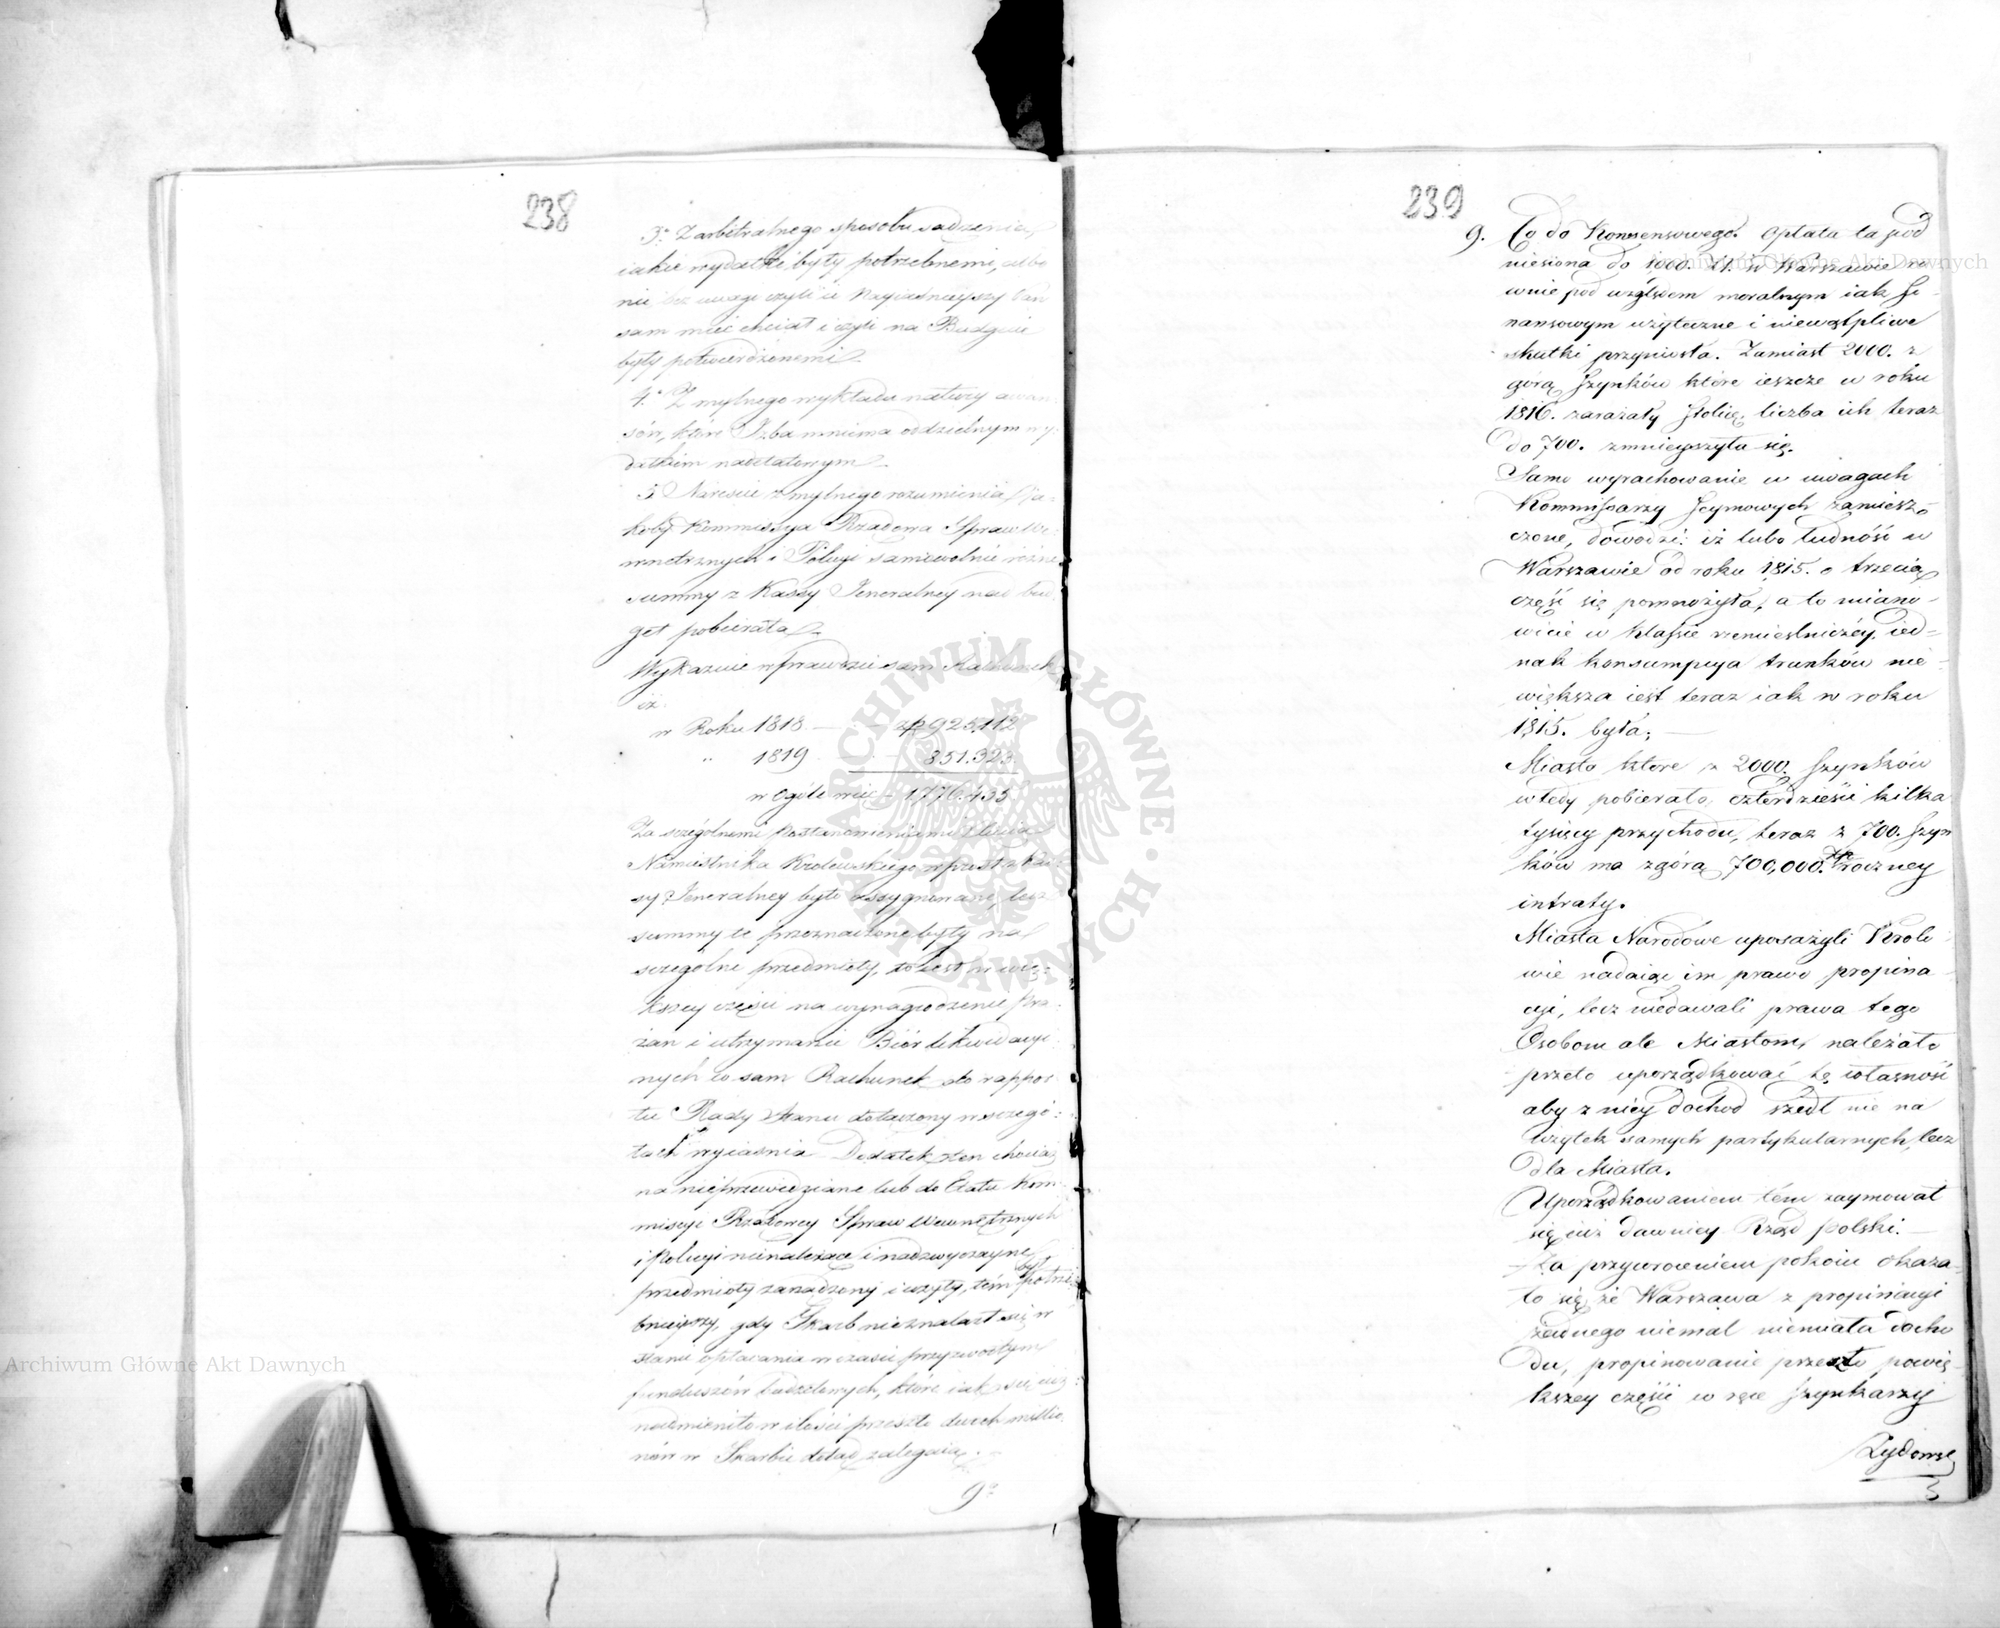 238
3° Z arbitralnego sposobu sądzenia
iakie wydatki były potrzebnemi, albo
nie bez uwagi czyli ie Nayiaśnieyszy Pan
sam mieć chciał i czyli na Budgecie
były potwierdzonemi.
4° Z mylnego wykładu natury awan-
sów, które Izba mniema oddzielnym wy-
datkiem nadetatowym.
5 Nareście z mylnego rozumienia, ia-
koby Kommissya Rządowa Spraw We-
wnętrznych i Policyi samowolnie różne
summy z Kassy Jeneralney nad bud-
get pobierała.
Wykazuie wprawdzie sam Rachunek
iż
w Roku 1818 — zp 925,112
" 1819 — 851.323
w Ogóle więc — 1.776.435
Za szczególnemi Postanowieniami Xięcia
Namiestnika Krolewskiego wprost z Kas-
sy Jeneralney było assygnowane, lecz
summy te przeznaczone były na
szczególne przedmioty, to iest w wię-
kszey części na wynagrodzenie
i utrzymanie Biór likwidacyi-
nych co sam Rachunek do rappor-
tu Rady Stanu dołączony w szczegó-
łach wyiaśnia Dodatek ten chociaż
na nieprzewidziane lub do Etatu Kom-
missyi Rządowey Spraw Wewnętrznych
i Policyi nienależące i nadzwyczayne
przedmioty zarządzony i użyty, tém był potrze-
bnieyszy, gdy Skarb nieznalazł się w
stanie opłacania w czasie przyzwoitym
funduszów budżetowych, które iak się iuż
nadmieniło w ilości przeszło dwóch millio-
nów w Skarbie dotąd zalegaią.
9°
239
9. Co do Konsensowego. Opłata ta pod
niesiona do 1000. zł. w Warszawie ró
wnie pod względem moralnym iak fi-
nansowym użyteczne i niewątpliwe
skutki przyniosła. Zamiast 2000. z
górą Szynków które ieszcze w roku
1816. zarażały Stolicę, liczba ich teraz
do 700. zmnieyszyła się.
Samo wyrachowanie w uwagach
Kommissarzy Seymowych zamiesz-
czone, dowodzi: iż lubo ludność w
Warszawie od roku 1815. o trzecią
część się pomnożyła, a to miano-
wicie w klassie rzemieślniczéy, ied-
nak konsumpcya trunków nie-
większa iest teraz iak w roku
1815. była; —
Miasto które z 2000. Szynków
wtedy pobierało czterdzieści kilka
tysięcy przychodu, teraz z 700. Szyn
ków ma z górą 700,000. zł. roczney
intraty.
Miasta Narodowe uposażyli Królo-
wie nadaiąc im prawo propina-
cyi, lecz niedawali prawa tego
Osobom ale Miastom, należało
przeto uporządkować tę własność
aby z niey dochod szedł nie na
użytek samych partykularnych, lecz
dla Miasta.
Uporządkowaniem tém zaymował
się iuż dawniey Rząd polski. —
Za przywroceniem pokoiu okaza-
ło się, że Warszawa z propinacyi
żadnego niemal niemiała docho
du, propinowanie przeszło powię-
kszey części w ręce Szynkarzy
Zydowsk
Archiwum Główne Akt Dawnych
Archiwum Główne Akt Dawnych
ARCHIWUM GŁÓWNE AKT DAWNYCH